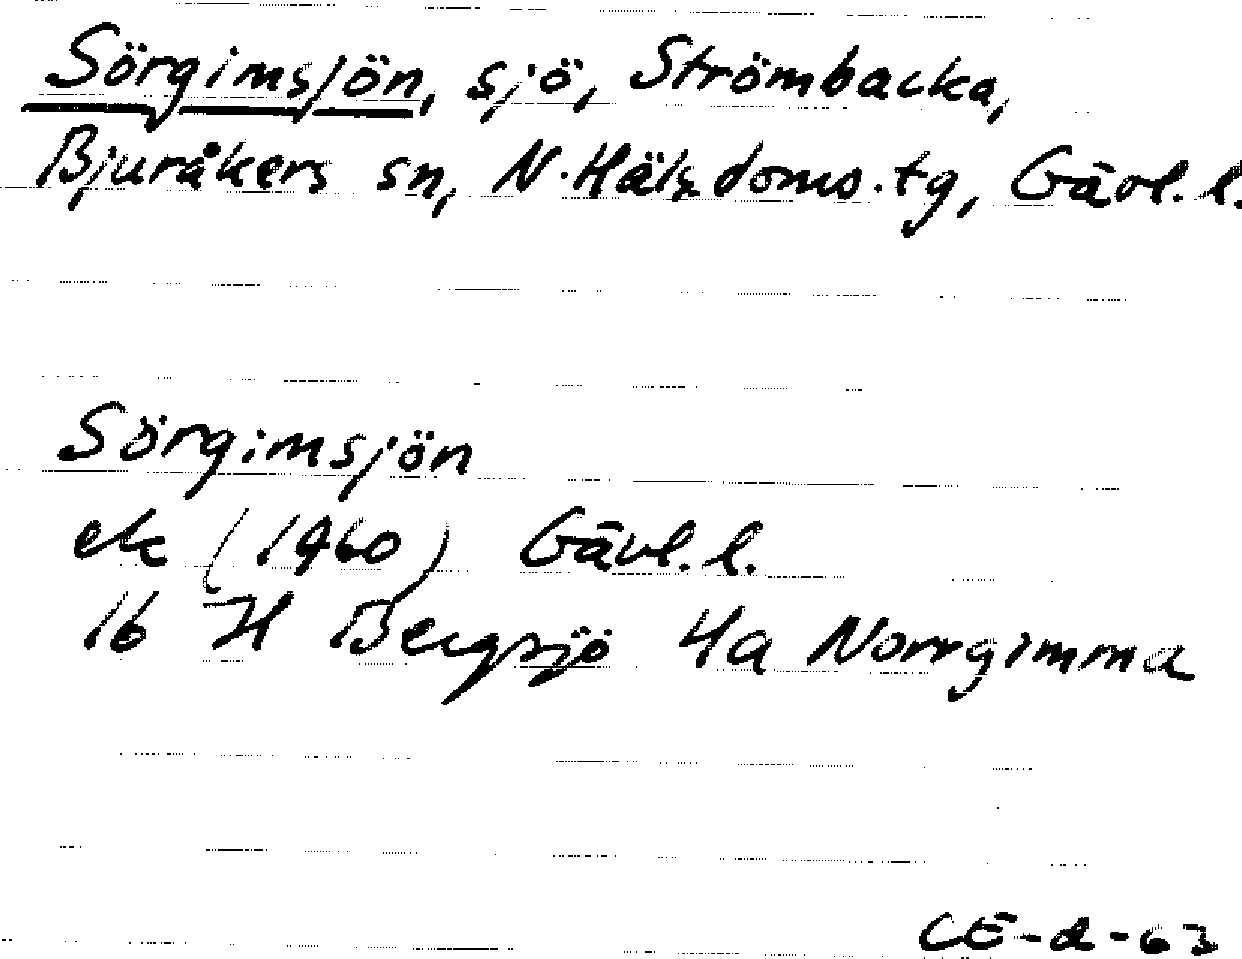 Sörgimsjön, sjö, Strömbacka,
Bjuråkers sn, N. Häls. doms. tg, Gävl. l.
Sörgimsjön
ek (1960) Gävl. l.
16 H Bergsjö 4a Norrgimma
CE-d-63